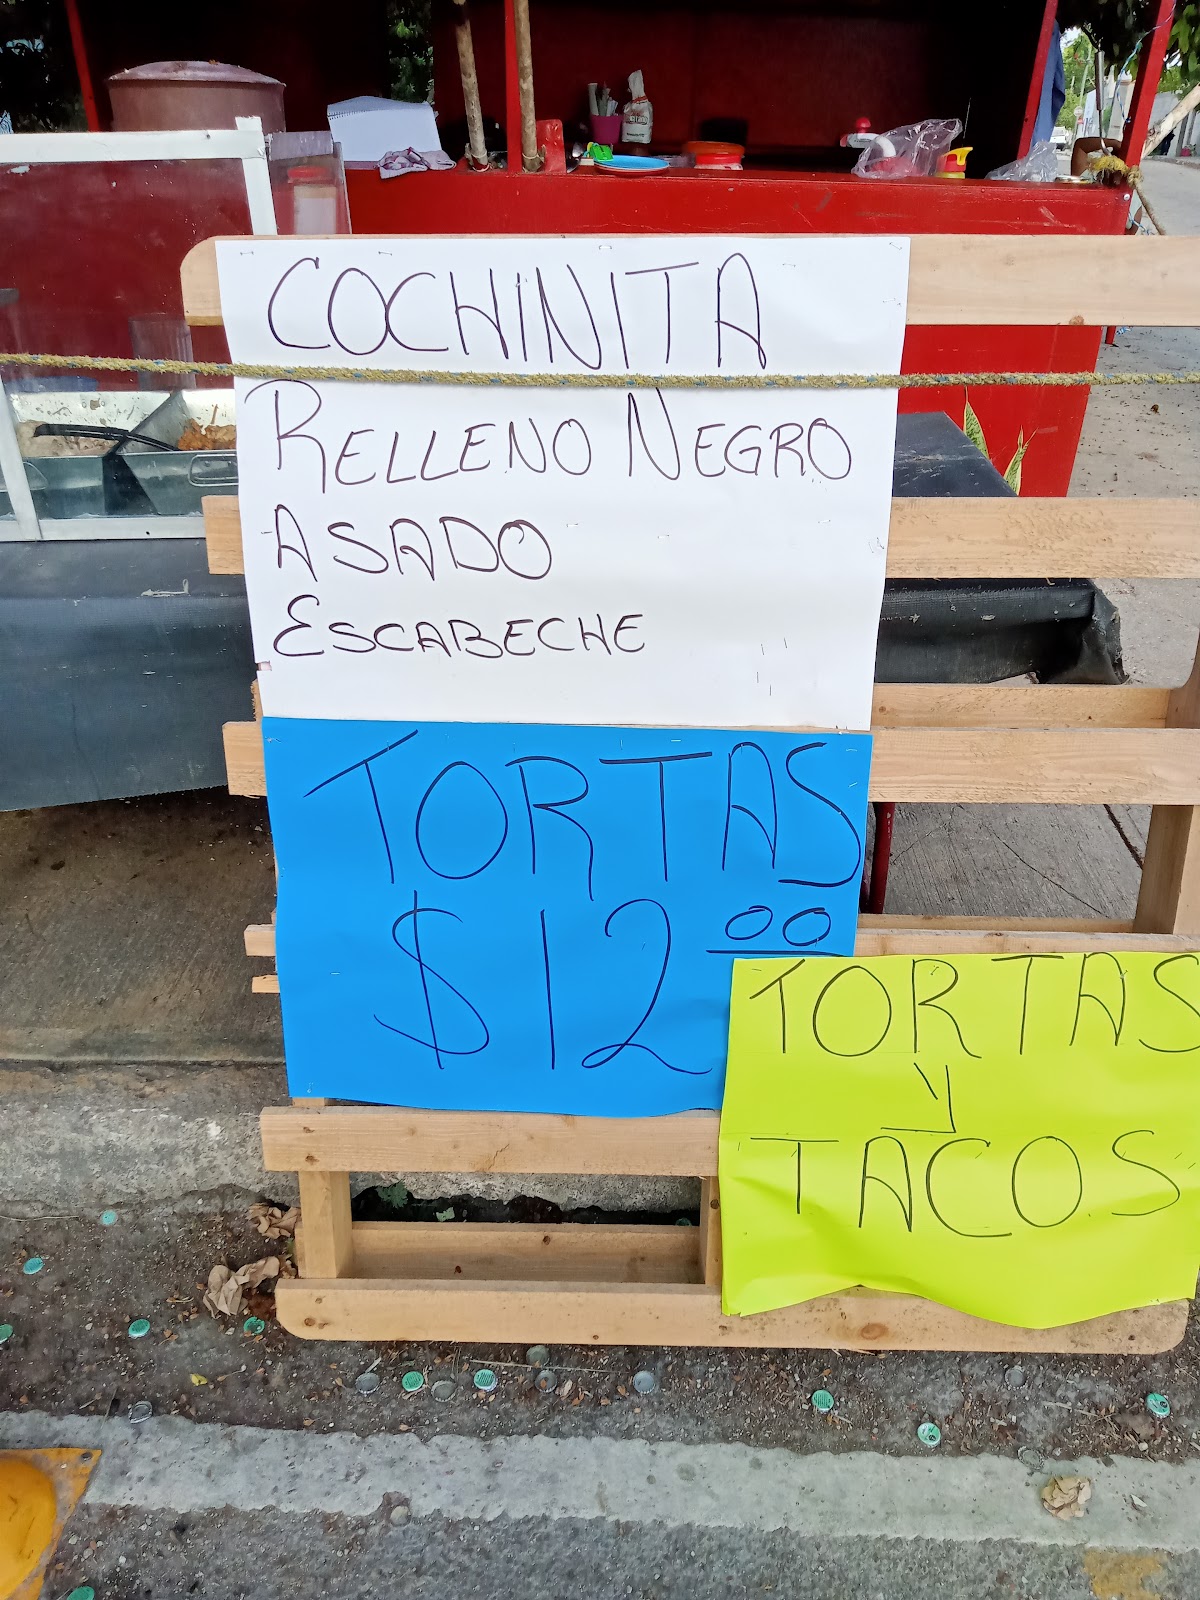 COCHINITA
RELLENO NEGRO
ASADO
ESCABECHE
TORTAS
$12.00
TORTAS
y
TACOS